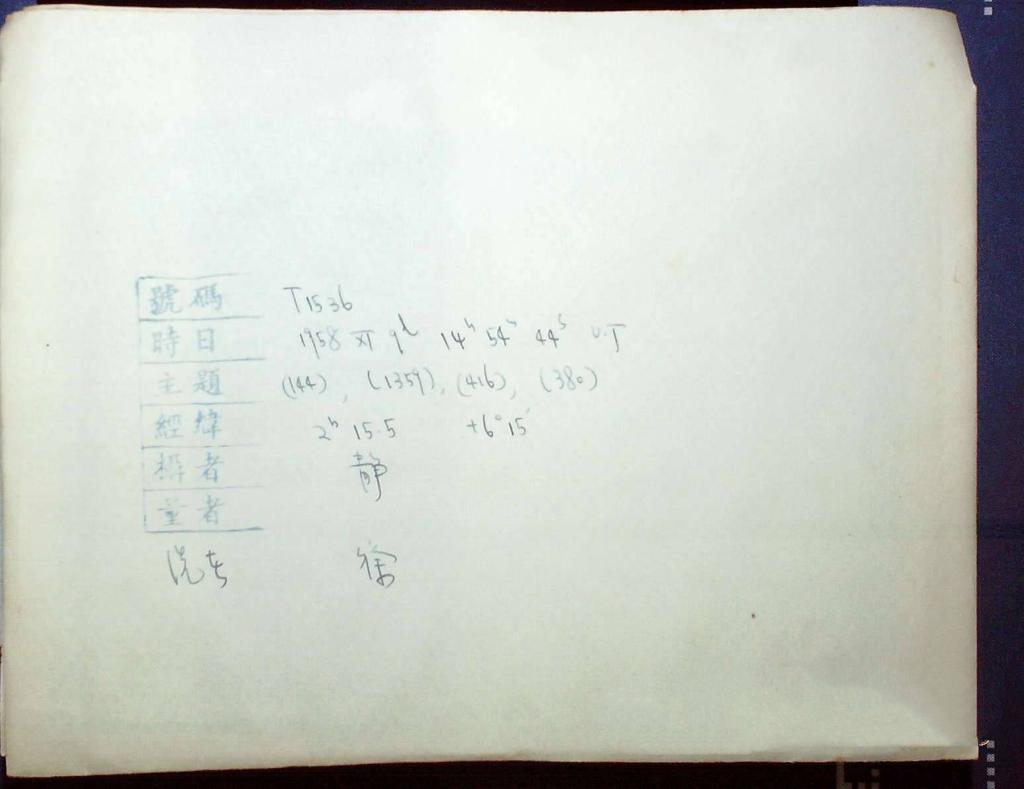 號碼 T1536
時日 1958 XI 9d 14h 54m 44s U.T
主題 (144), (1359), (416), (380)
經緯 2h 15.5 +6° 15'
者 静
量者
洗者 徐